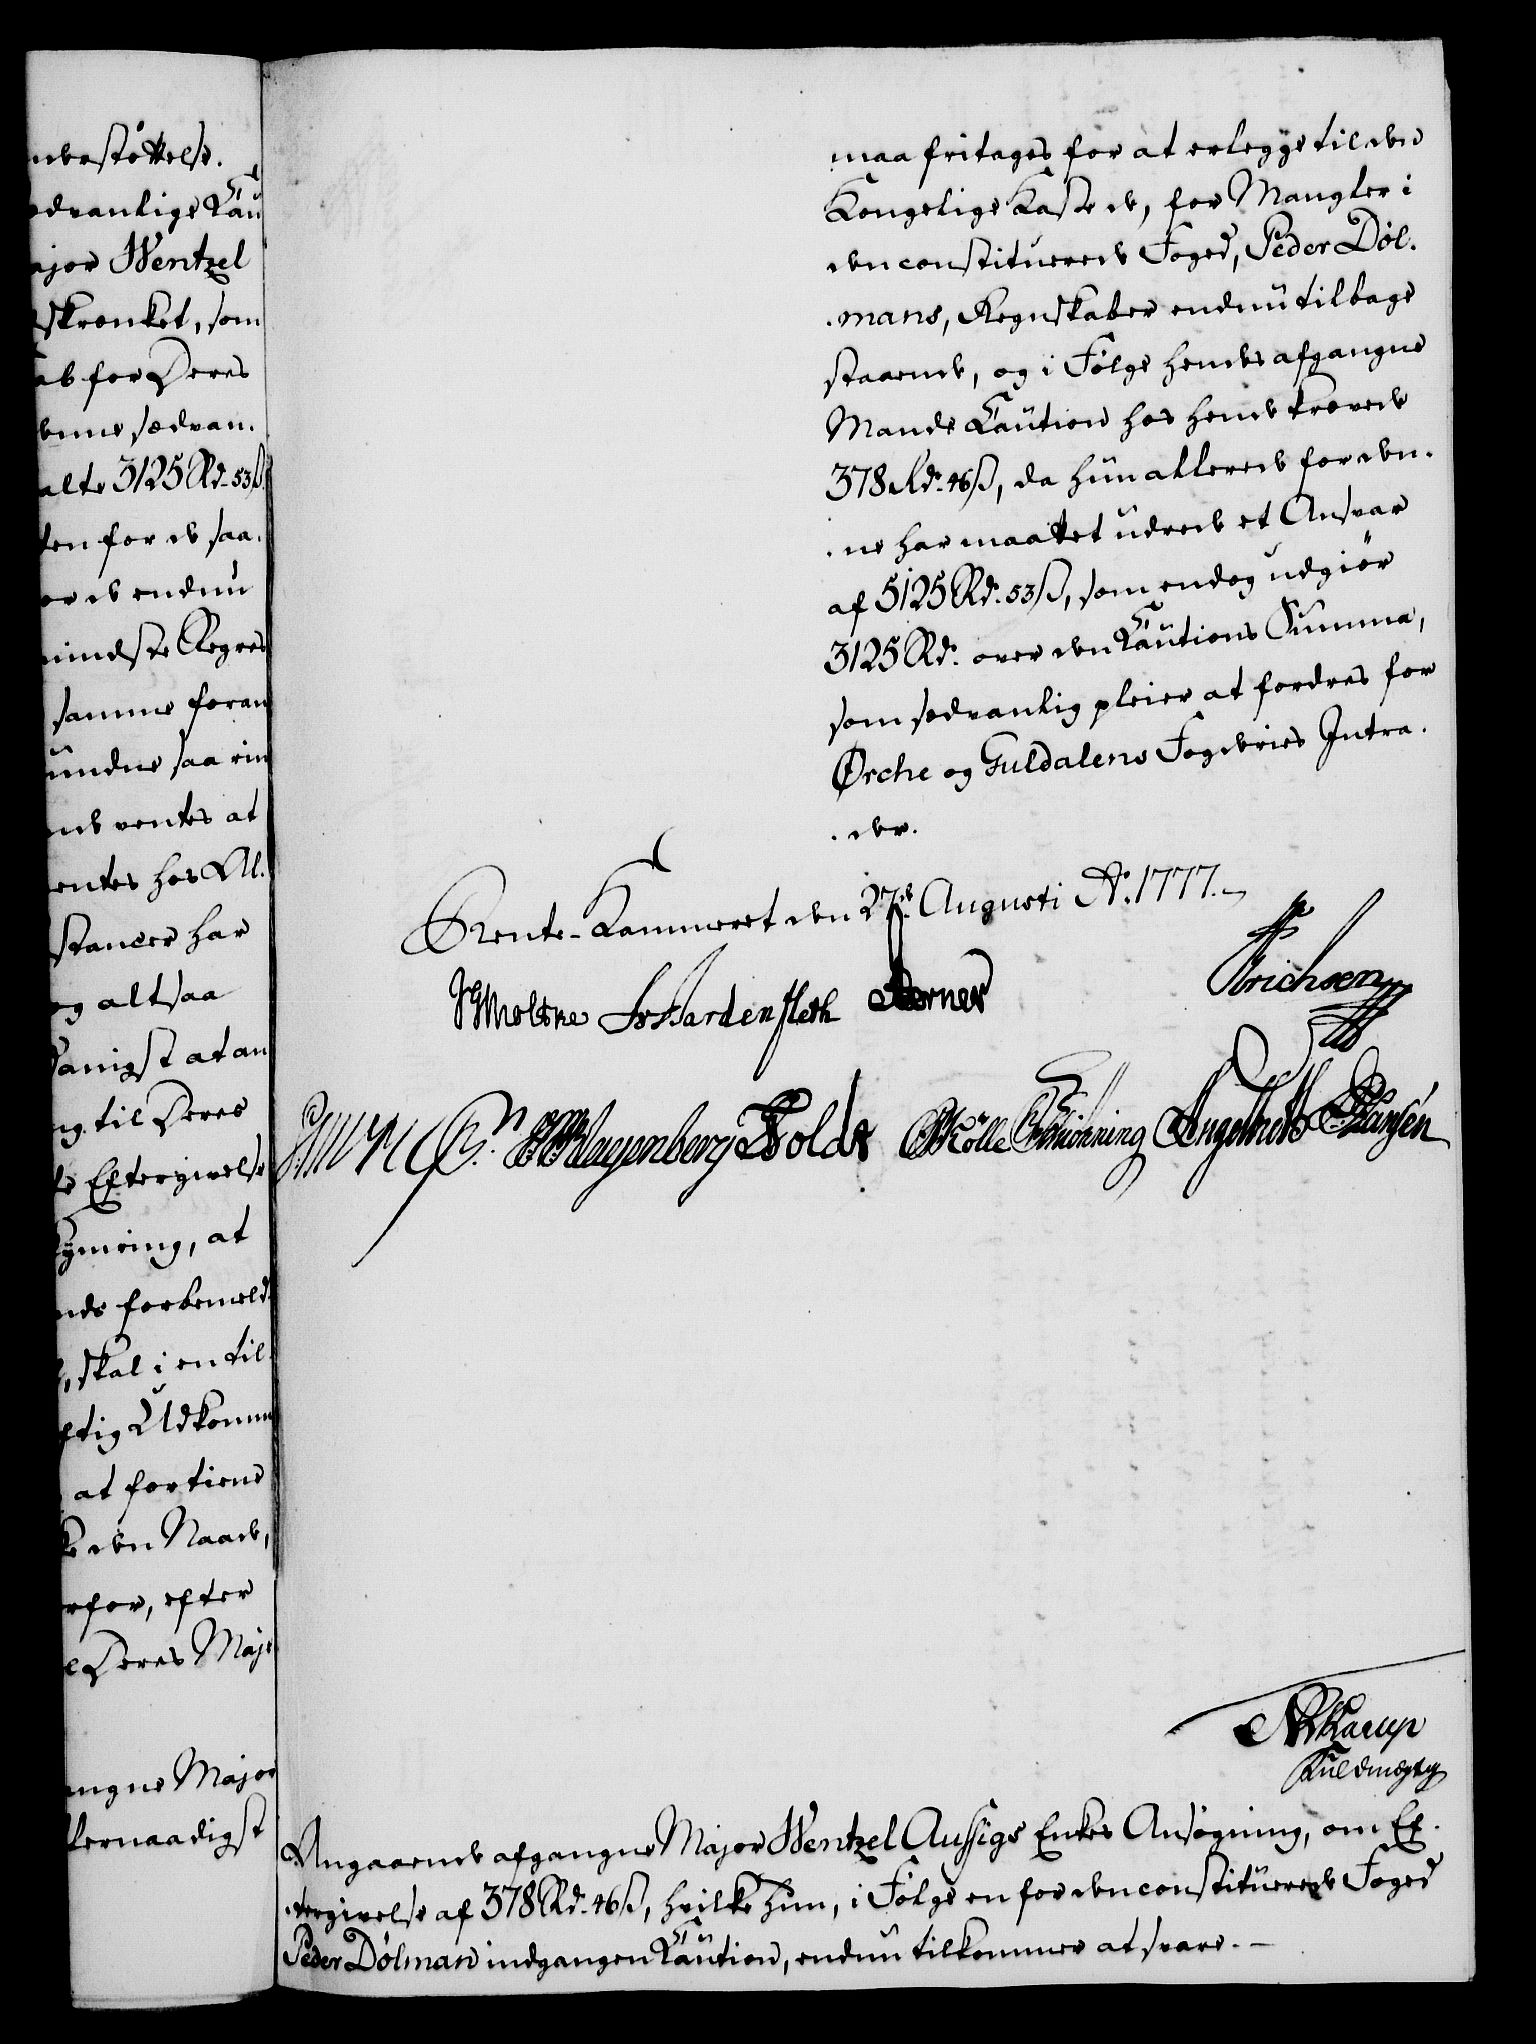 nderstøttelse.
ædvanlige Cau
ajor Wentzel
skrænket, som
ab for Deres
denne sædvan.
alte 3125 Rd. 53 ß.
ten for de saa.
or de endnu
mindste Regres
samme foran
undne saa rin
nde ventes at
entes hos Al.
stancer har
og altsaa
danigst at an
ng til Deres
te Eftergivelse
Lymring, at
nds forbemeld.
, skal i en til
ftig Udkomm
at fortiene
ke den Naade,
rfor, efter
e Deres Maje
angne Major
lernaadigst
maa fritages for at erlegge til den
Kongelige Kasse de, for Mangler i
den constituerede Foged, Peder Døl.
.mans, Regnskaber endnu tilbage
staaende, og i Følge hendes afgangne
Mands Caution hos hende krævede
378 Rd. 46 ß, da hun allerede for den.
.ne har maattet udrede et Ansvar
af 5125 Rd. 53 ß, som endog udgiør
3125 Rd. over den Cautions Summa,
som sædvanlig pleier at fordres for
Ørche og Guldalens Fogderies Intra.
.der.
Rente-Kammeret den 27de Augusti Ao. 1777.
JGMoltke Hardenfleth Berner Erichsen
Wagenberg Holdt Mölle Schiønning Angelbeth Hansen
Karup
Fuldmægtig
Angaaende afgangne Major Wentzel Aussigs Enkes Ansøgning, om Ef.
.tergivelse af 378 Rd. 46 ß, hvilke hun, i Følge en for den constituerede Foged
Peder Dølman indgangen Caution, endnu tilkommer at svare. –